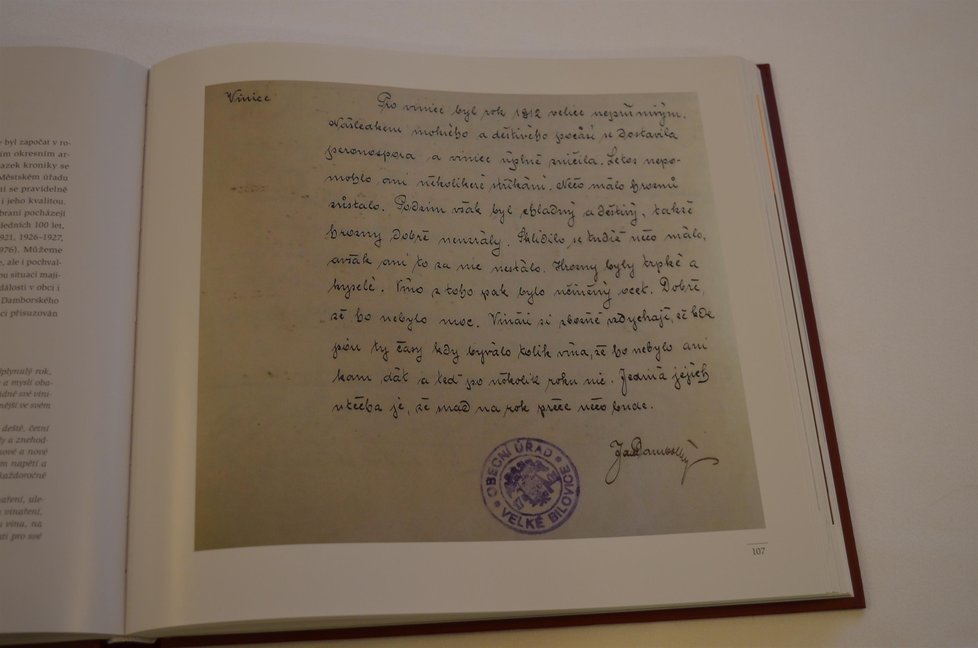 e byl započat v ro-
ím okresním ar-
azek kroniky se
Městském úřadu
ní se pravidelně
i jeho kvalitou.
braní pocházejí
ledních 100 let,
921, 1926–1927,
976). Můžeme
e, ale i pochval-
ou situací mají-
dálosti v obci i
Damborského
ci přisuzován
plynulý rok,
e a mysli oba-
ídně své vini-
nější ve svém
deště, četní
ly a znehod-
nové a nové
m napětí a
každoročně
naření, ule-
vinaření,
u vína, na
sti pro své
Vinice
Pro vinice byl rok 1912 velice nepříznivým.
Následkem mokrého a deštivého počasí se dostavila
peronospora a vinice úplně zničila. Letos nepo-
mohlo ani několikeré stříkání. Něco málo hroznů
zůstalo. Podzim však byl chladný a deštivý, takže
hrozny dobře neuzrály. Sklidilo se tudíž něco málo,
avšak ani to za nic nestálo. Hrozny byly trpké a
kyselé. Víno z toho pak bylo učiněný ocet. Dobře,
že ho nebylo moc. Vináři si zbožně vzdychají, že kde
jsou ty časy kdy bývalo tolik vína, že ho nebylo ani
kam dát a teď po několik roků nic. Jediná jejich
útěcha je, že snad na rok přece něco bude.
Jan Damborský
OBECNÍ ÚŘAD
VELKÉ BÍLOVICE
107